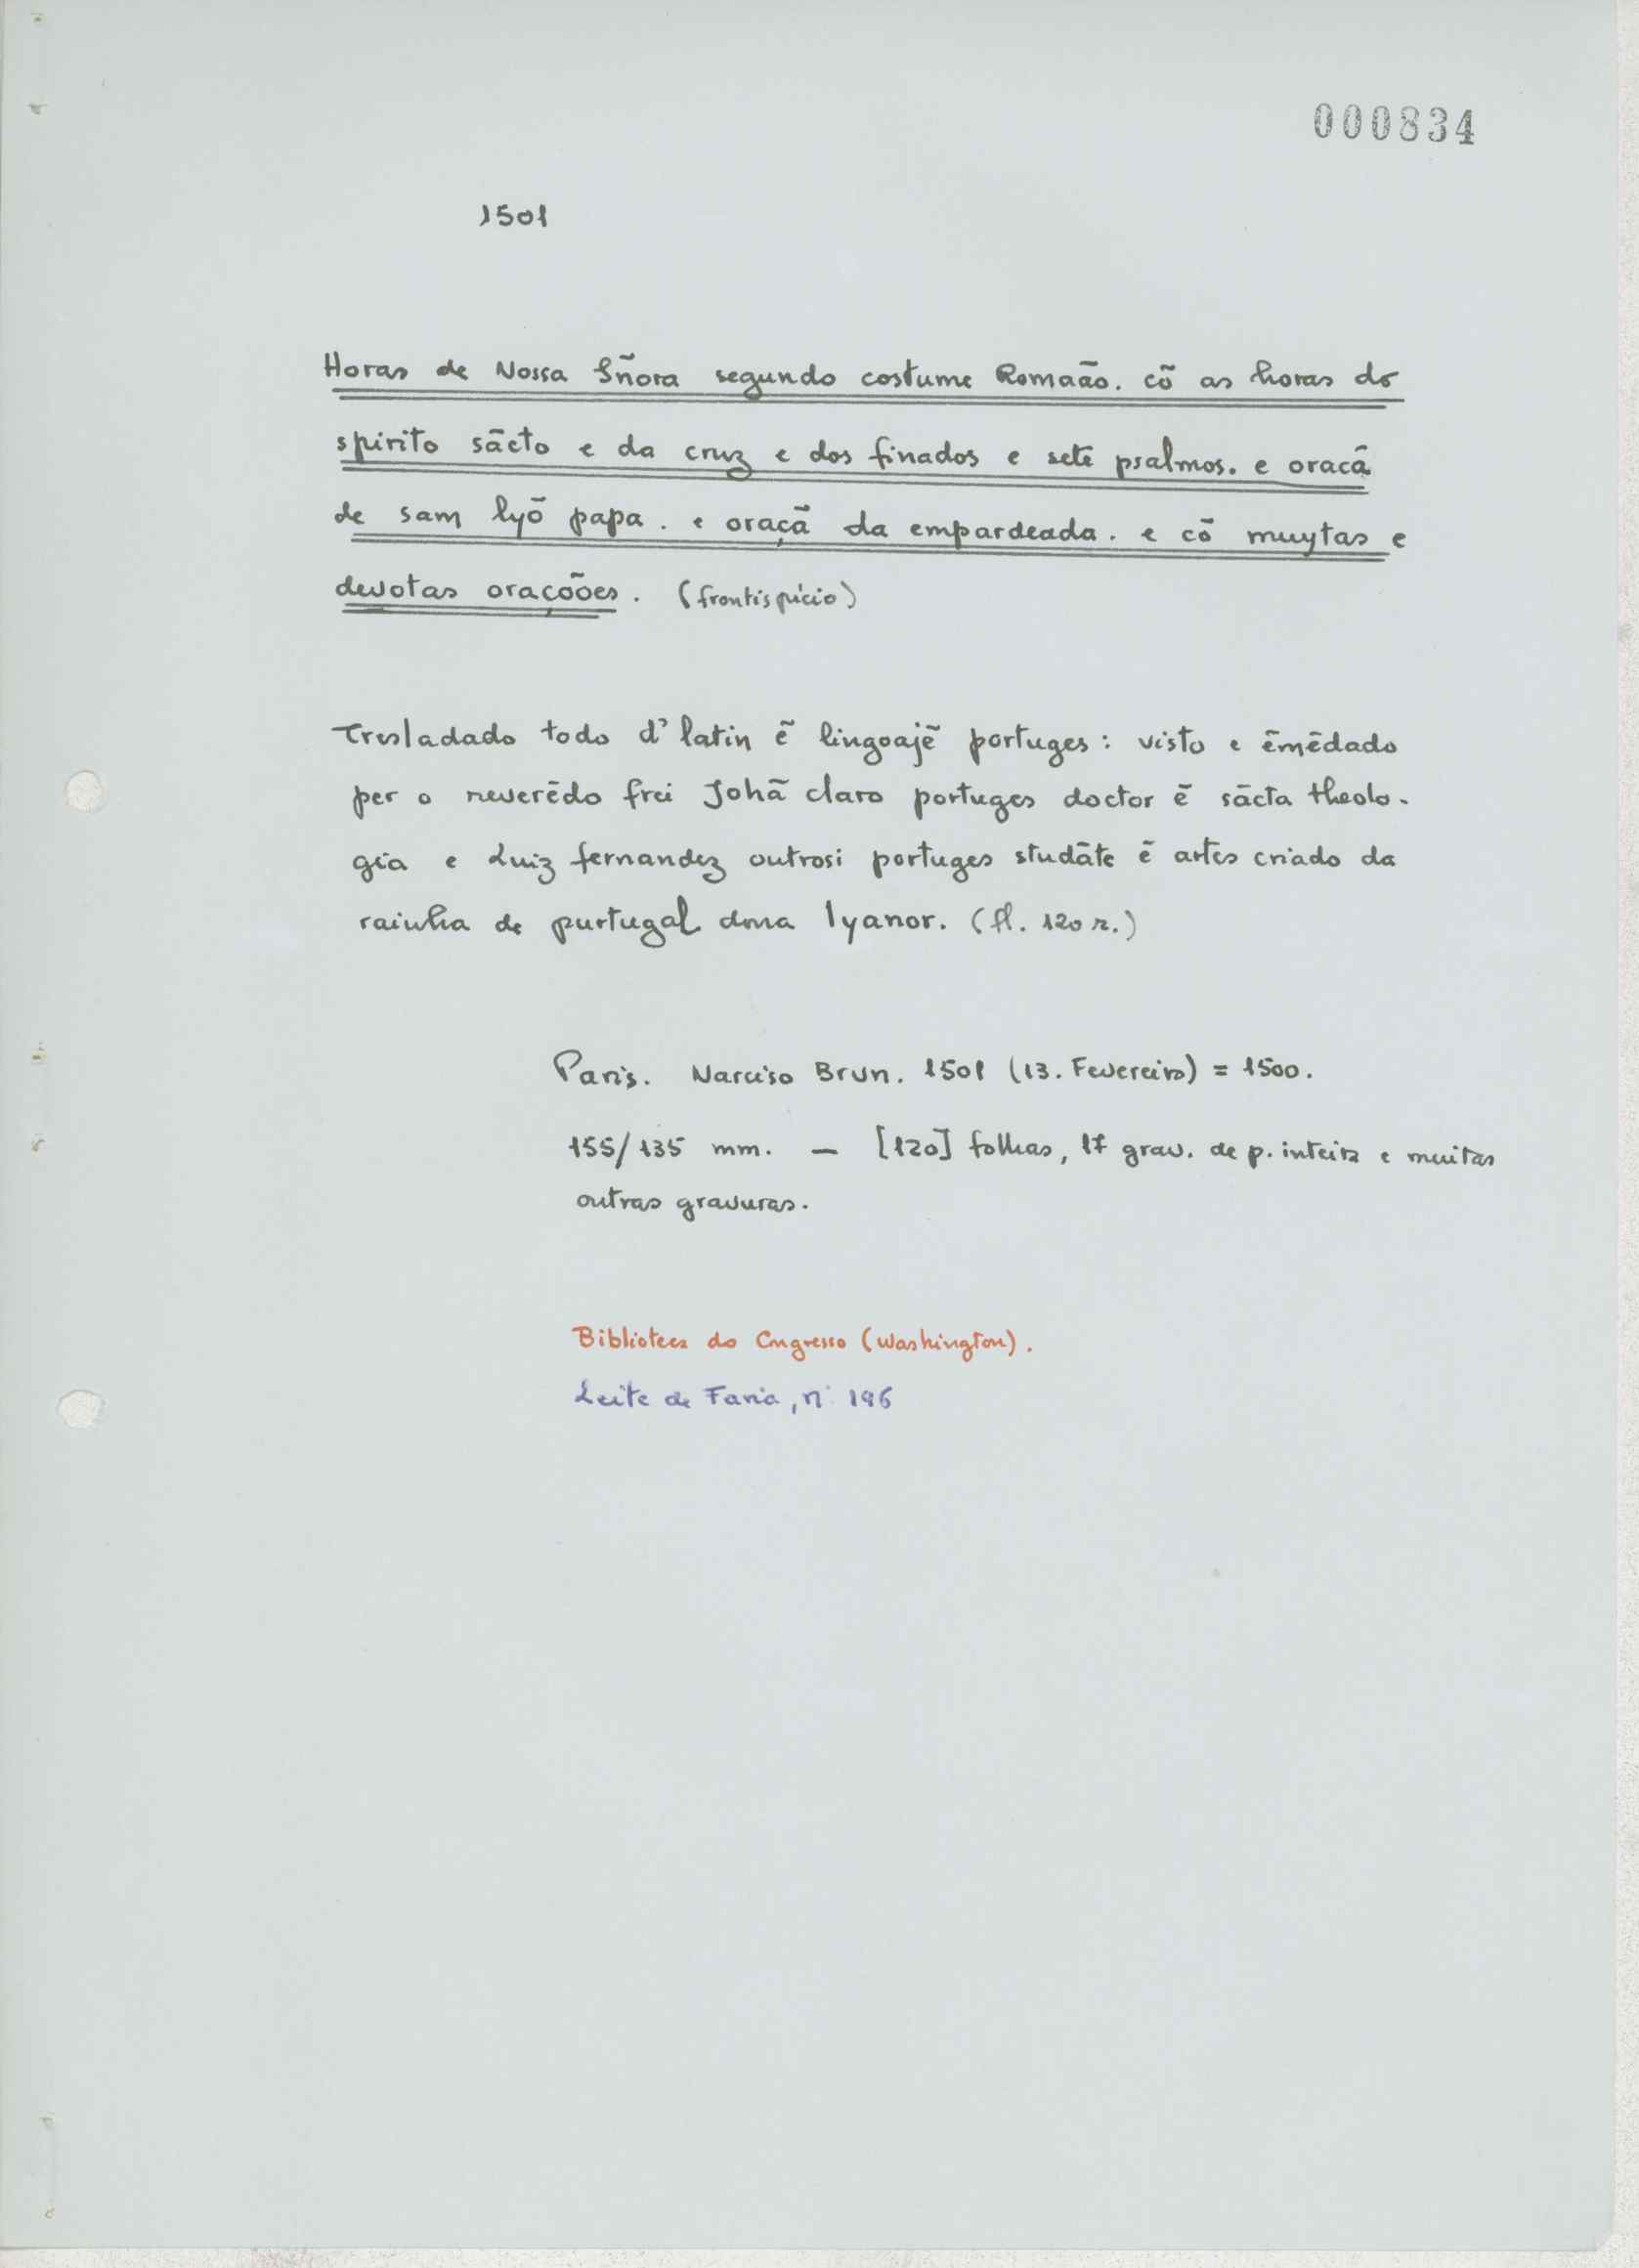 000834
1501
Horas de Nossa Sñora segundo costume Romaão. cõ as horas do
spirito sãcto e da cruz e dos finados e sete psalmos. e oracã
de sam lyõ papa. e oraçã da empardeada. e cõ muytas e
devotas oraçõões. (frontispício)
Tresladado todo d' latin ẽ lingoajẽ portuges: visto e ẽmẽdado
per o reverẽdo frei Johã claro portuges doctor ẽ sãcta theolo-
gia e Luiz fernandez outrosi portuges studãte ẽ artes criado da
rainha de purtugal dona lyanor. (fl. 120 r.)
Paris. Narciso Brun. 1501 (13. Fevereiro) = 1500.
155/135 mm. — [120] folhas, 17 grav. de p. inteira e muitas
outras gravuras.
Biblioteca do Congresso (Washington).
Leite de Faria, nº 196